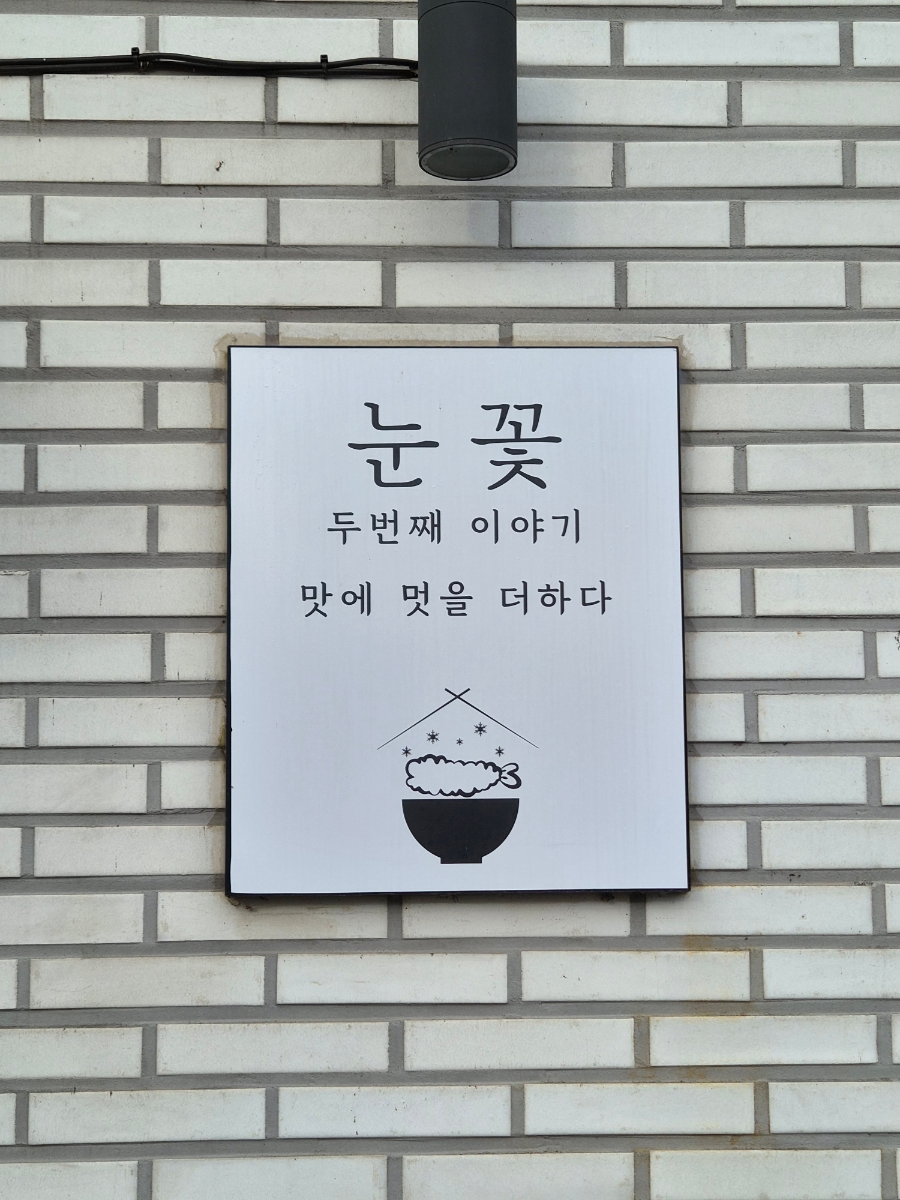 눈 꽃
두번째 이야기
맛에 멋을 더하다